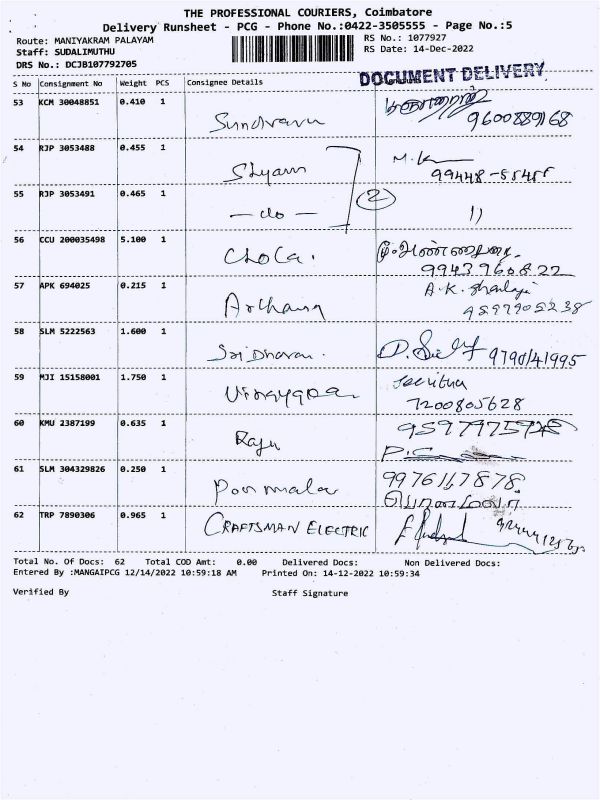 THE PROFESSIONAL COURIERS, Coimbatore
Delivery Runsheet - PCG - Phone No.:0422-3505555 - Page No.:5
Route: MANIYAKRAM PALAYAM RS No.: 1077927
Staff: SUDALIMUTHU RS Date: 14-Dec-2022
DRS No.: DCJB107792705
S No Consignment No Weight PCS Consignee Details
DOCUMENT DELIVERY
53 KCM 30048851 0.410 1
9600889168
54 RJP 3053488 0.455 1
Shyam
55 RJP 3053491 0.465 1
— do — 2 11
56 CCU 200035498 5.100 1
Chola.
9943960822
57 APK 694025 0.215 1
Archana A.K. Shailaja
58 SLM 5222563 1.600 1
Sridharan. 9790141995
59 MJI 15158001 1.750 1
7200805628
60 KMU 2387199 0.635 1
Raju
61 SLM 304329826 0.250 1
Ponmalar 9976117878
பொன்மலர்
62 TRP 7890306 0.965 1
CRAFTSMAN ELECTRIC
Total No. Of Docs: 62 Total COD Amt: 0.00 Delivered Docs: Non Delivered Docs:
Entered By :MANGAIPCG 12/14/2022 10:59:18 AM Printed On: 14-12-2022 10:59:34
Verified By Staff Signature